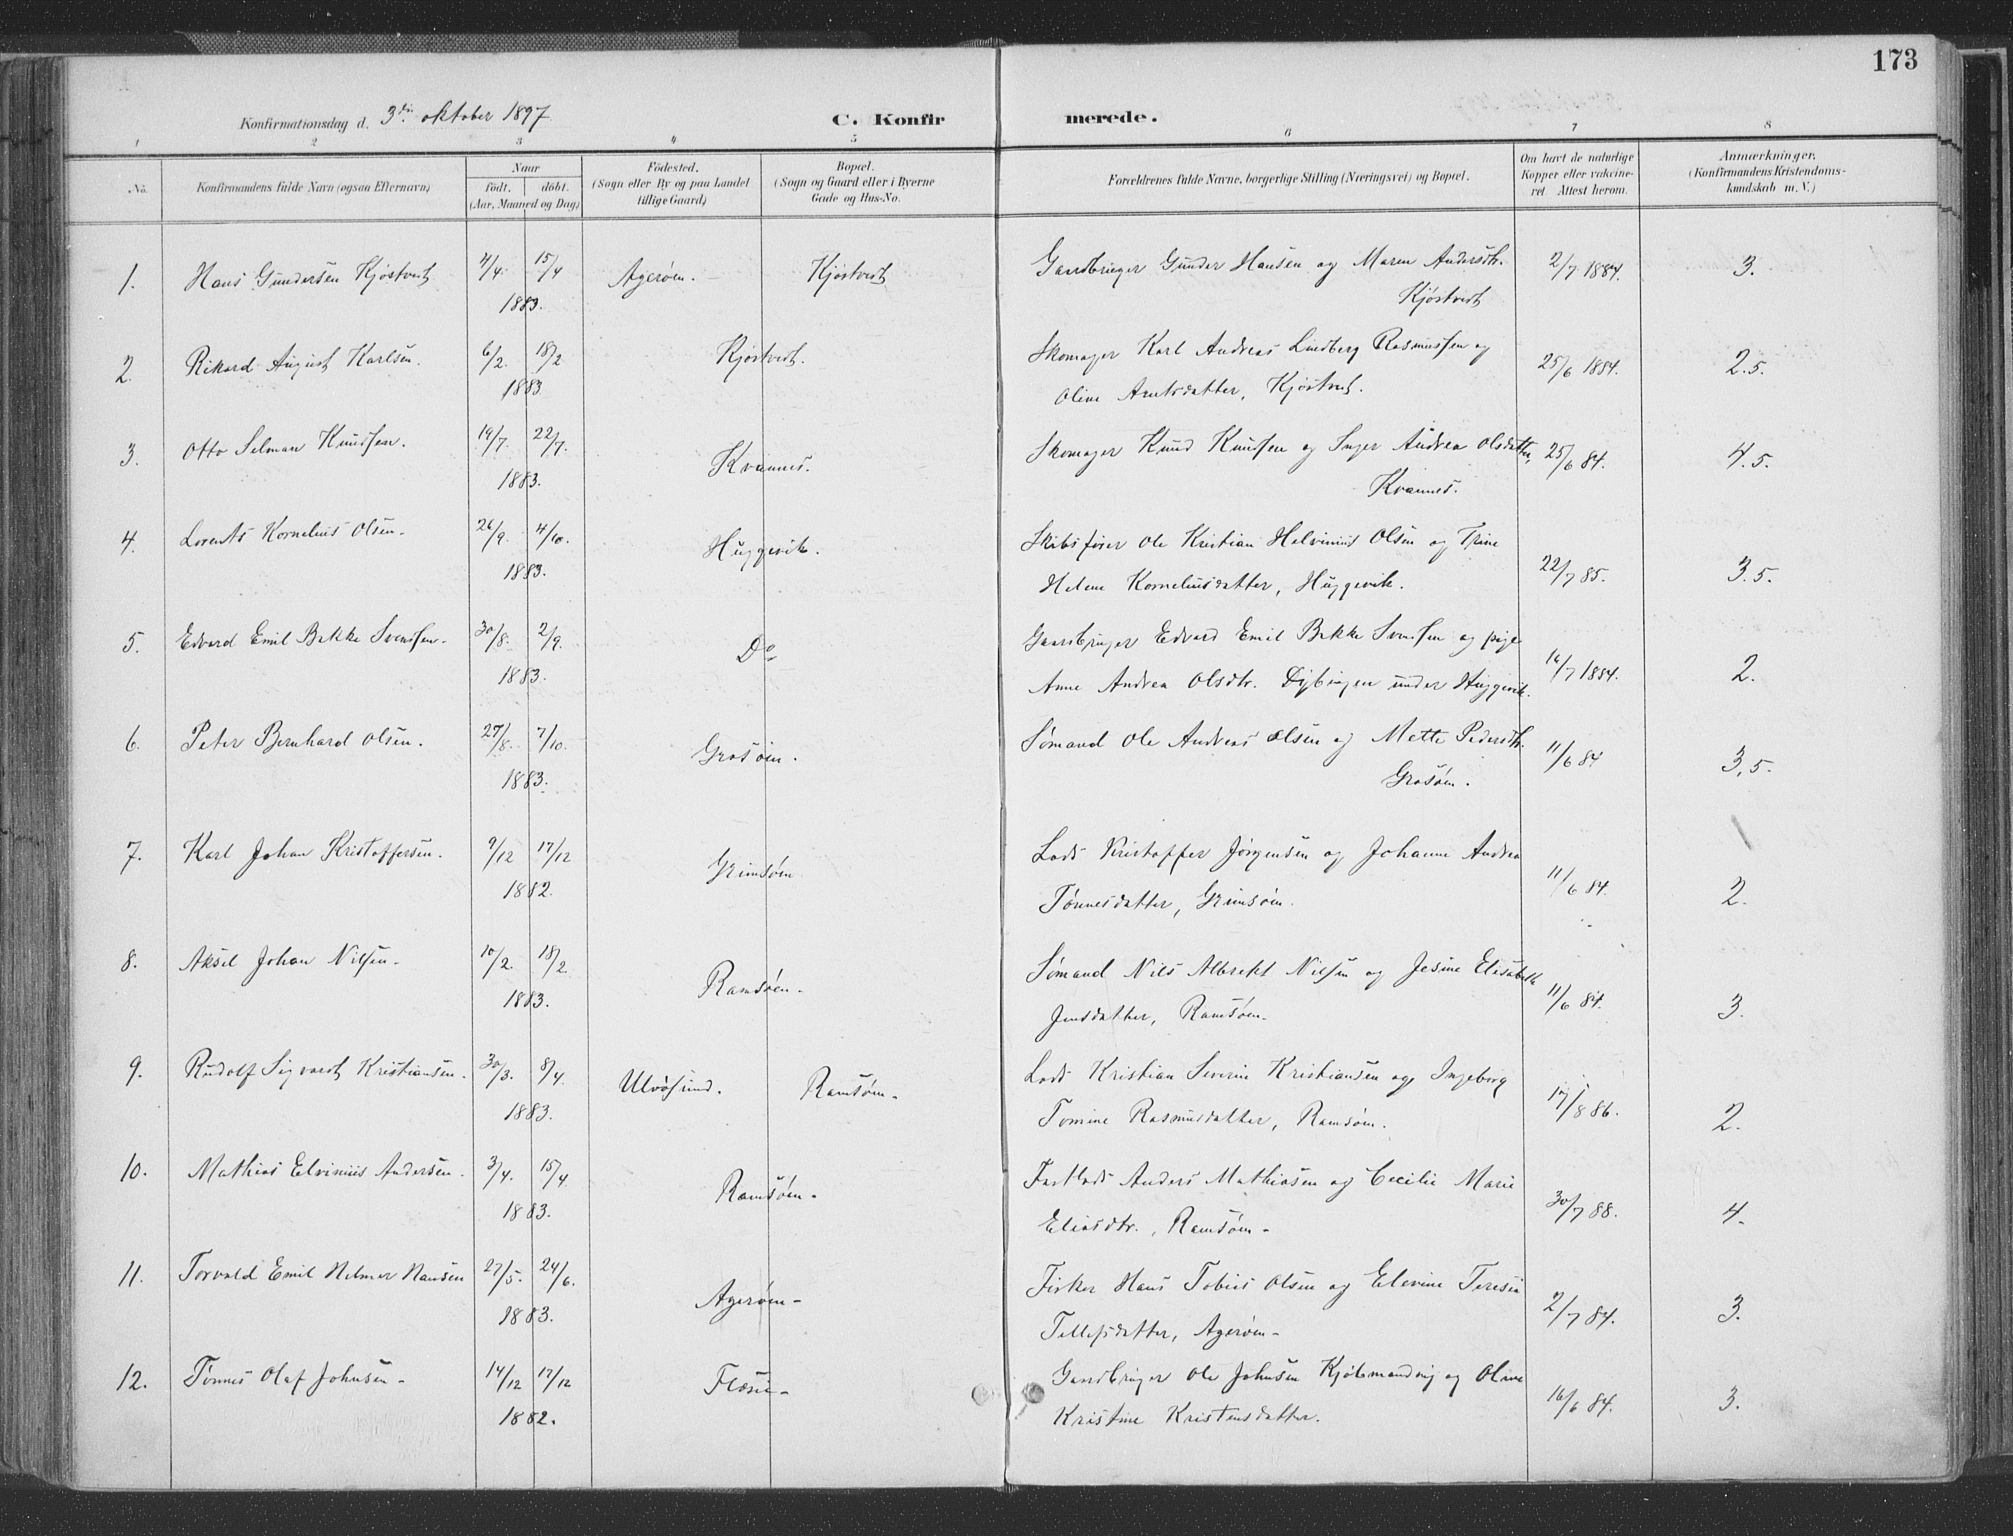 173
Konfirmationsdag d. 3die oktober 1897
C. Konfirmerede.
1 2 3 4 5 6 7 8
No. Konfirmandens fulde Navn (ogsaa Efternavn) Naar født. døbt. (Aar, Maaned og Dag) Fødested. (Sogn eller By og paa Landet tillige Gaard) Bopæl. (Sogn og Gaard eller i Byerne Gade og Hus-No. Forældrenes fulde Navne, borgerlige Stilling (Næringsvei) og Bopæl. Om havt de naturlige Kopper eller vakcineret. Attest herom. Anmærkninger. (Konfirmandens Kristendomskundskab m. V.)
1. Hans Gundersen Kjøstvedt 4/4. 15/4 1883. Agerøen. Kjøstvedt Gaardbruger Gunder Hansen og Maren Andersdtr. 2/7 1884. 3.
Kjøstvedt
2. Rikard August Karlsen. 6/2. 18/2 1883 Kjøstvedt. Skomager Karl Andreas Lindberg Rasmussen og 25/6 1884. 2.5.
Oline Arntsdatter, Kjøstvedt.
3. Otto Selmar Knudsen. 19/7. 22/7. 1883. Kvannes. Skomager Knud Knudsen og Inger Andrea Olsdatter, 25/6 84. 4.5.
Kvannes.
4. Lorents Kornelius Olsen. 26/9. 4/10. 1883. Huggevik. Skibsfører Ole Kristian Helvinius Olsen og Trine
Helene Korneliusdatter, Huggevik. 22/7 85. 3.5.
5. Edvard Emil Bakke Svendsen. 30/8. 2/9. 1883. Do Gaardbruger Edvard Emil Bakke Svendsen og pige
Anne Andrea Olsdtr. Dybingen under Huggevik. 16/7 1884. 2.
6. Peter Bernhard Olsen. 27/8. 7/10. 1883. Grosøen. Sømand Ole Andreas Olsen og Mette Pedersdtr. 11/6 84 3,5.
Grosøen.
7. Karl Johan Kristoffersen. 9/12 17/12 1882. Grimsøen Lods Kristoffer Jørgensen og Johanne Andrea
Tønnesdatter, Grimsøen. 11/6 84. 2.
8. Aksel Johan Nilsen. 10/2. 18/2 1883. Ramsøen. Sømand Nils Albrekt Nilsen og Jesine Elisabeth
Jensdatter, Ramsøen. 11/6 84. 3.
9. Rudolf Sigvardt Kristiansen. 30/3. 8/4. 1883. Ulvøsund. Ramsøen. Lods Kristian Severin Kristiansen og Ingeborg
Tomine Rasmusdatter, Ramsøen. 17/8 86. 2.
10. Mathias Elvinius Andersen. 3/4. 15/4 1883. Ramsøen. Fastlods Anders Mathiasen og Cecilie Marie
Eliasdtr., Ramsøen. 30/7 88. 4.
11. Torvald Emil Helmer Hansen 27/5. 24/6. 1883. Agerøen. Fisker Hans Tobias Olsen og Elevine Teresia
Tellefsdatter, Agerøen. 2/7 84. 3.
12. Tønnes Olaf Johnsen. 14/12 17/12 1882. Flosvi. Gaardbruger Ole Johnsen Kjøbmandsvig og Oline
Kristine Kristensdatter. 16/6 84. 3.